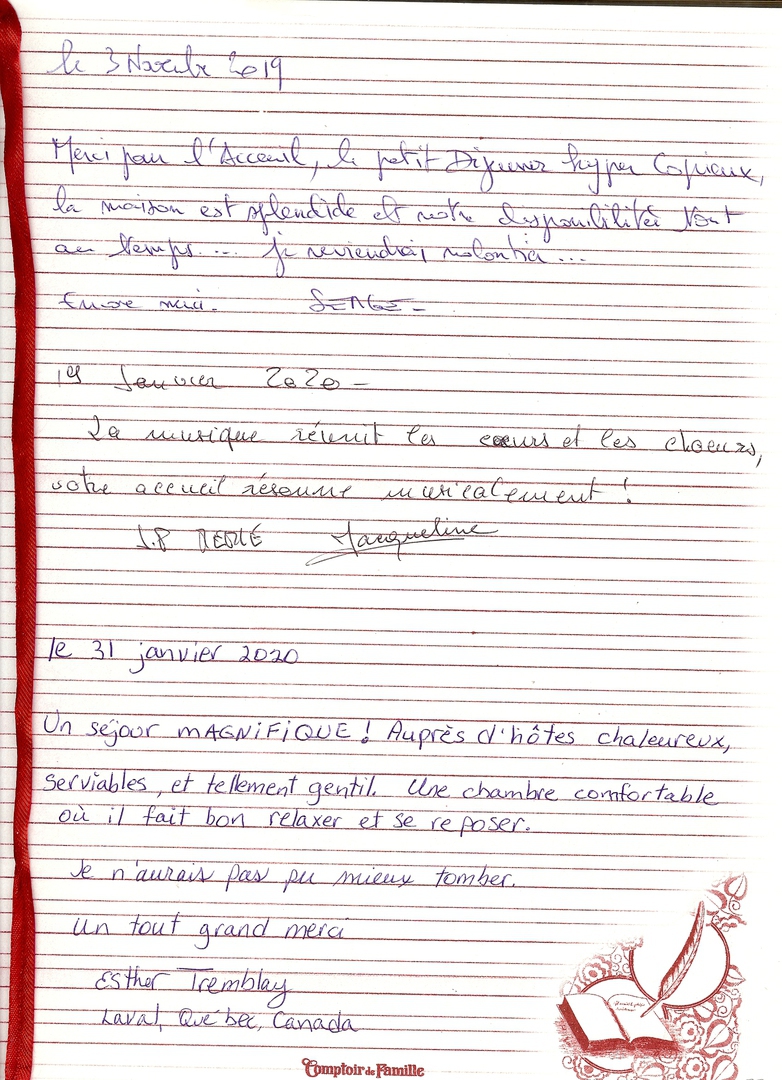 le 3 Novembre 2019
Merci pour l'Acceuil, le petit Déjeuner hyper Copieux,
la maison est splendide et votre disponibilité vaut
au temps.... je reviendrai volontier...
Encore merci. SERGE
19 Janvier 2020 -
La musique réunit les cœurs et les choeurs,
votre accueil résonne musicalement !
J.P Jacqueline
le 31 janvier 2020
Un séjour mAGNiFiQUE ! Auprès d'hôtes chaleureux,
serviables, et tellement gentil. Une chambre comfortable
où il fait bon relaxer et se reposer.
Je n'aurais pas pu mieux tomber.
un tout grand merci
Esther Tremblay
Laval, Québec, Canada
Comptoir de Famille